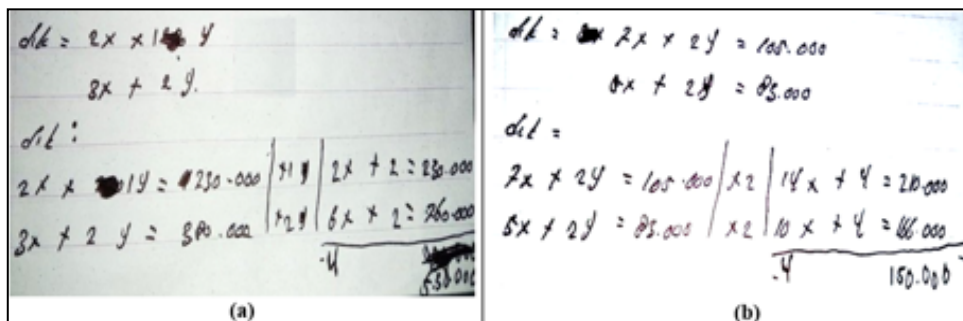 dik = 2x x 1 y
3x + 2 y.
dit :
2x x 1y = 230.000 | x1y | 2x + 2 = 230.000
3x + 2 y = 380.000 | x2y | 6x x 2 = 760.000
-4
530.000
(a)
dik = 7x x 2y = 105.000
5x + 2y = 83.000
dit =
7x x 2y = 105.000 | x2 | 14x + 4 = 210.000
5x + 2y = 83.000 | x2 | 10x + 4 = 166.000
-4 150.000
(b)